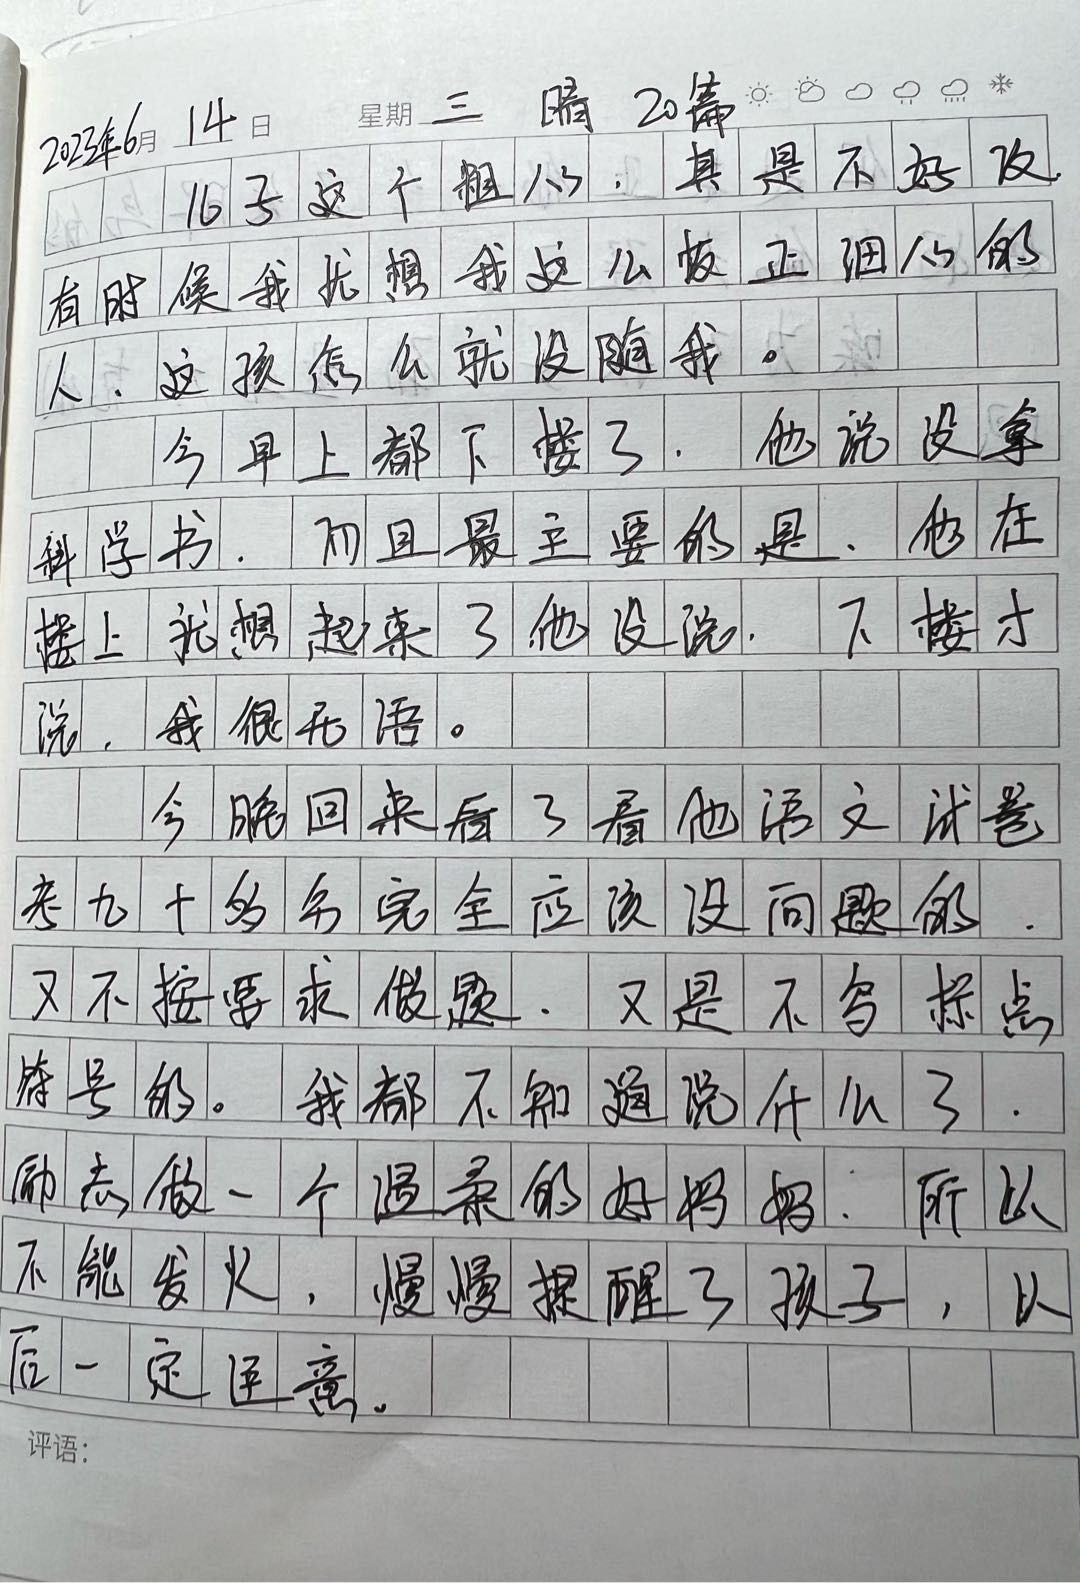 2023年6月 14 日 星期 三 晴 20篇
儿子这个粗心.真是不好改.
有时候我就想我这么板正细心的
人.这孩怎么就没随我。
今早上都下楼了.他说没拿
科学书.而且最主要的是.他在
楼上就想起来了他没说.下楼才
说.我很无语。
今晚回来看了看他语文试卷
考九十多分完全应该没问题的.
又不按要求做题.又是不写标点
符号的。我都不知道说什么了.
励志做一个温柔的好妈妈.所以
不能发火,慢慢提醒了孩子,以
后一定注意。
评语: